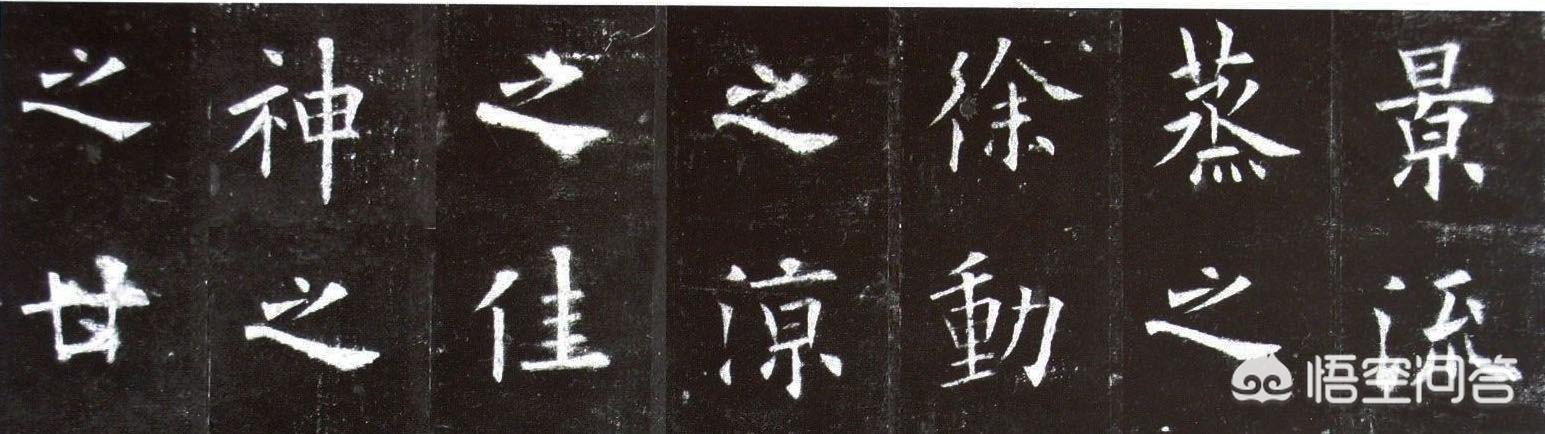 景流
蒸之
徐動
之涼
之佳
神之
之甘
悟空问答